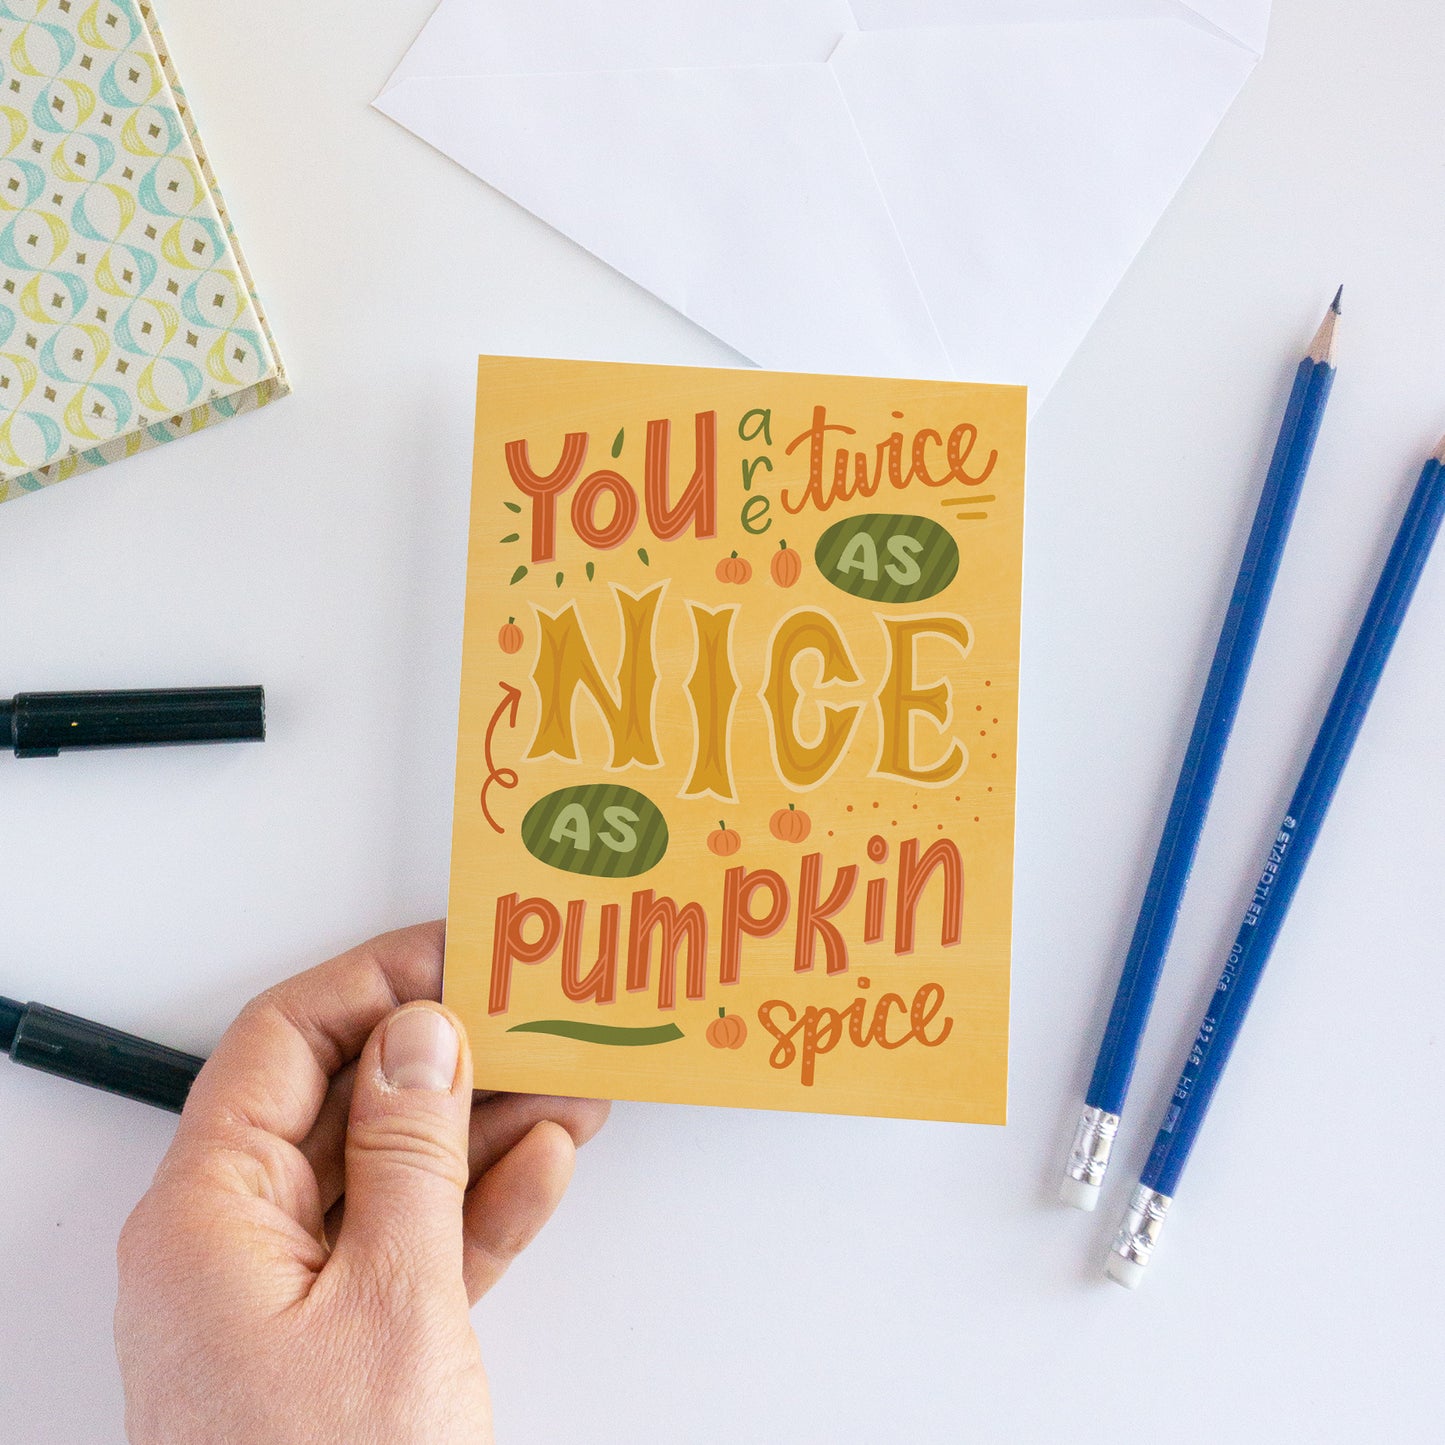 YOU are twice
AS
NICE
AS
pumpkin
spice
STAEDTLER norica 132 46 HB 2